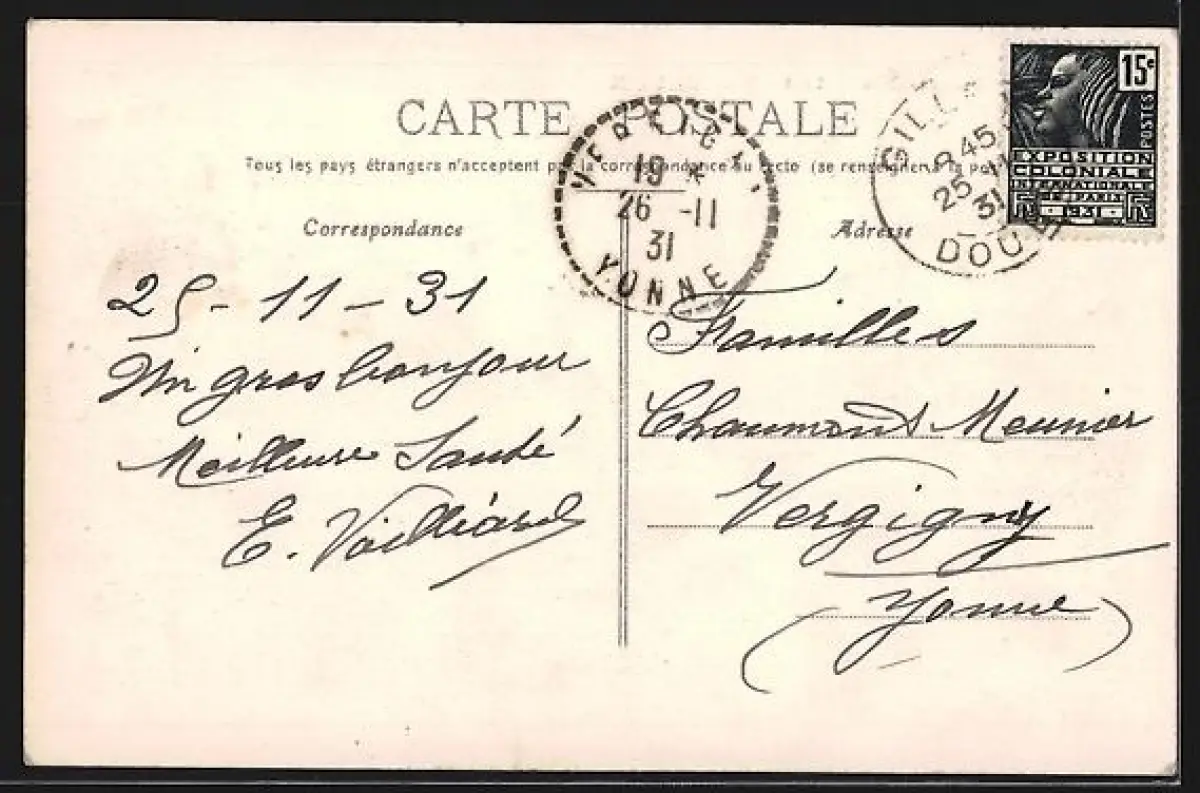 CARTE POSTALE
Tous les pays étrangers n'acceptent pas la correspondance au recto (se renseigner à la
Correspondance
Adresse
VERGIGNY
19 *
26 -11
31
YONNE
GILLEY
8 45
25 11
31
DOUBS
15c
POSTES
EXPOSITION
COLONIALE
INTERNATIONALE
DE PARIS
RF 1931 RF
25-11-31
Un gros bonjour
Meilleure Santé
E.
Familles
Chaumont Meunier
Vergigny
(Yonne)